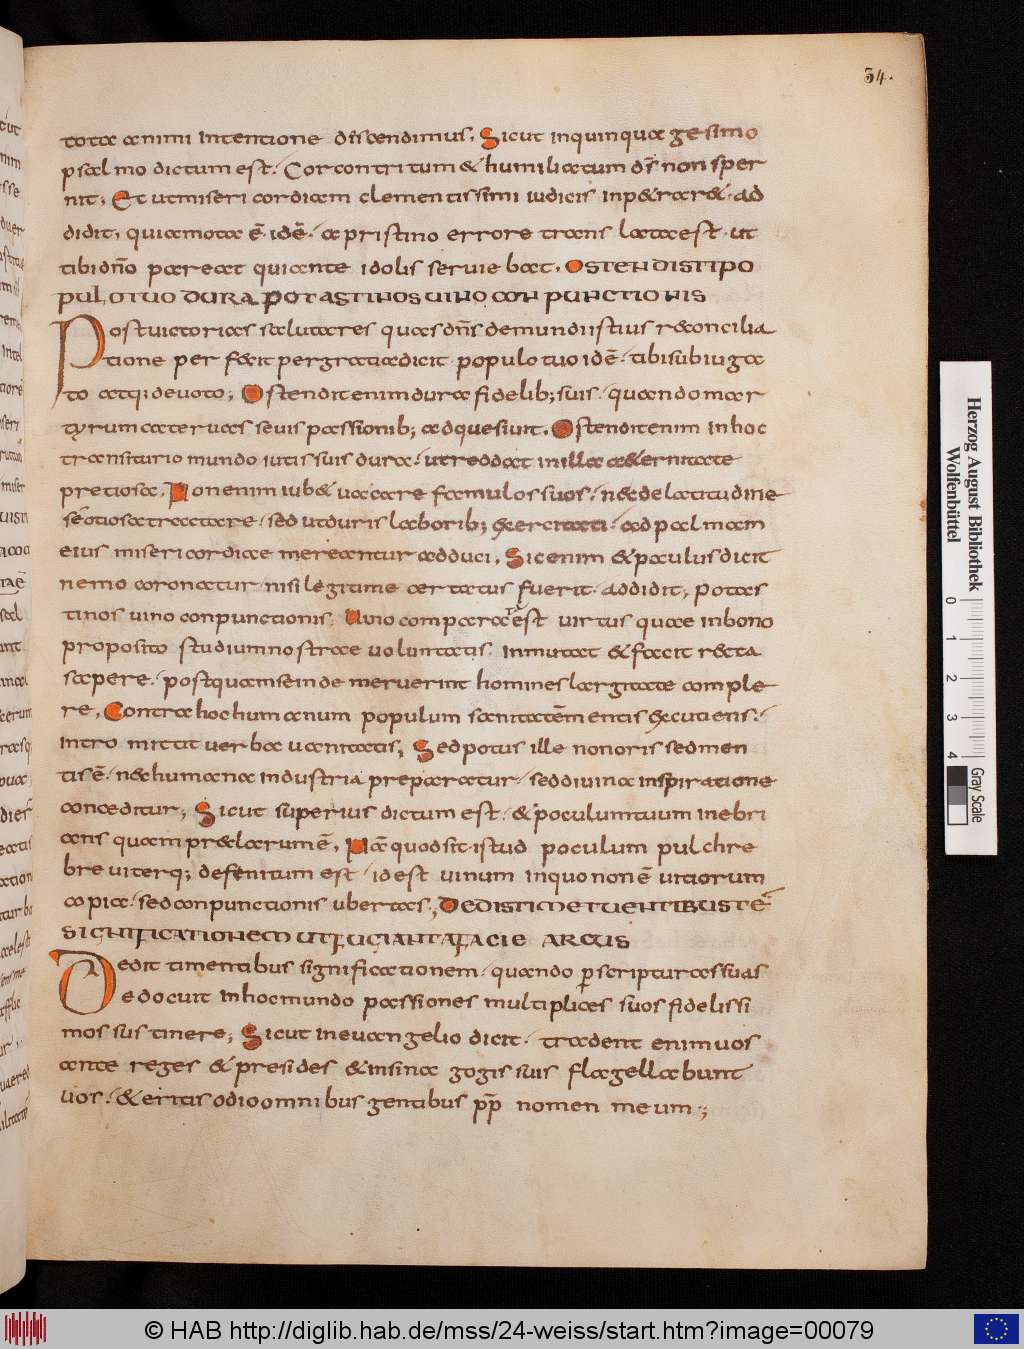 34.
tota animi intentione dn̄s cendimus. Sicut inquinquagesimo
psalmo dictum est. Cor contritum & humiliatum ds̄ non sper
nit; Et ut misericordiam clementissimi iudicis inp&rar&. ad
didit; quia mota ē. idē. a pristino errore translata est. ut
tibi dn̄o pareat qui ante idolis seruiebat. OSTENDISTI PO
PULO TUO DURA POTASTI NOS UINO CONPUNCTIONIS
Post uictorias salutares quas dn̄s de mundi istius reconcilia
tione perfecit per gratia dicit populo tuo idē. tibi subiuga
to atq; deuoto; Ostendit enim dura fidelib; suis. quando mar
tyrum cateruas seuis passionib; adquesiuit. Ostendit enim in hoc
transiturio mundo iutis suis dura. ut reddat in illa aeternitate
pretiosa. Non enim iub& uacare famulos suos. nec delatitudine
se otiosa tractare. sed ut duris laborib; exercitati. ad palmam
eius misericordiae mereantur adduci. Sic enim & paulus dicit
nemo coronatur nisi legitime certatus fuerit. addidit; potas
ti nos uino conpunctionis. Uino comparata est uirtus quae in bono
proposito studium nostrae uoluntatis. inmutat & facit recta
sapere. postquam se inde meruerint homines largitate comple
re. Contra hoc humanum populum sanitatē mentis excutiens.
intro mittit uerba uanitatis; Sed potus ille non oris sed men
tis ē. nec humana industria preparatur. sed diuina inspiratione
conceditur; Sicut superius dictum est. & poculum tuum inebri
ans quam preclarum ē. Nā quod sit istud poculum pulchre
breuiterq; defenitum est. id est uinum in quo non ē uitiorum
copia. sed conpunctionis ubertas; DEDISTI METUENTIBUS TE
SIGNIFICATIONEM UT FUGIANT A FACIE ARCUS
Dedit timentibus significationem. quando p scripturas suas
edocuit in hoc mundo passiones multiplices suos fidelissi
mos sustinere; Sicut in euangelio dicit. tradent enim uos
ante reges & presides & in sinagogis suis flagellabunt
uos. & eritis odio omnibus gentibus pp̄ nomen meum;
Herzog August Bibliothek
Wolfenbüttel
0 1 2 3 4
Gray Scale
© HAB http://diglib.hab.de/mss/24-weiss/start.htm?image=00079